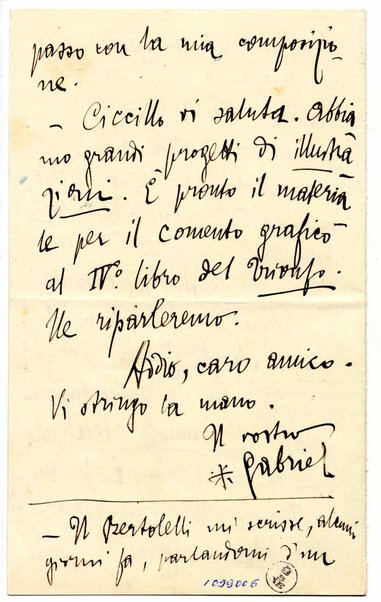 passo con la mia composizio
ne.
— Ciccillo vi saluta. Abbia
mo grandi progetti di illustra
zioni. È pronto il materia
le per il comento grafico
al IV.° libro del Trionfo.
Ne riparleremo.
Addio, caro amico.
Vi stringo la mano.
Il vostro
* Gabriel
— Il Bertolelli mi scrisse, alcuni
giorni fa, parlandomi d'un
1099006